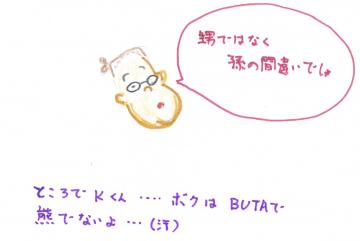 甥ではなく
孫の間違いでしょ
ところで Kくん ‥‥ ボクは BUTAで
熊でないよ …(汗)